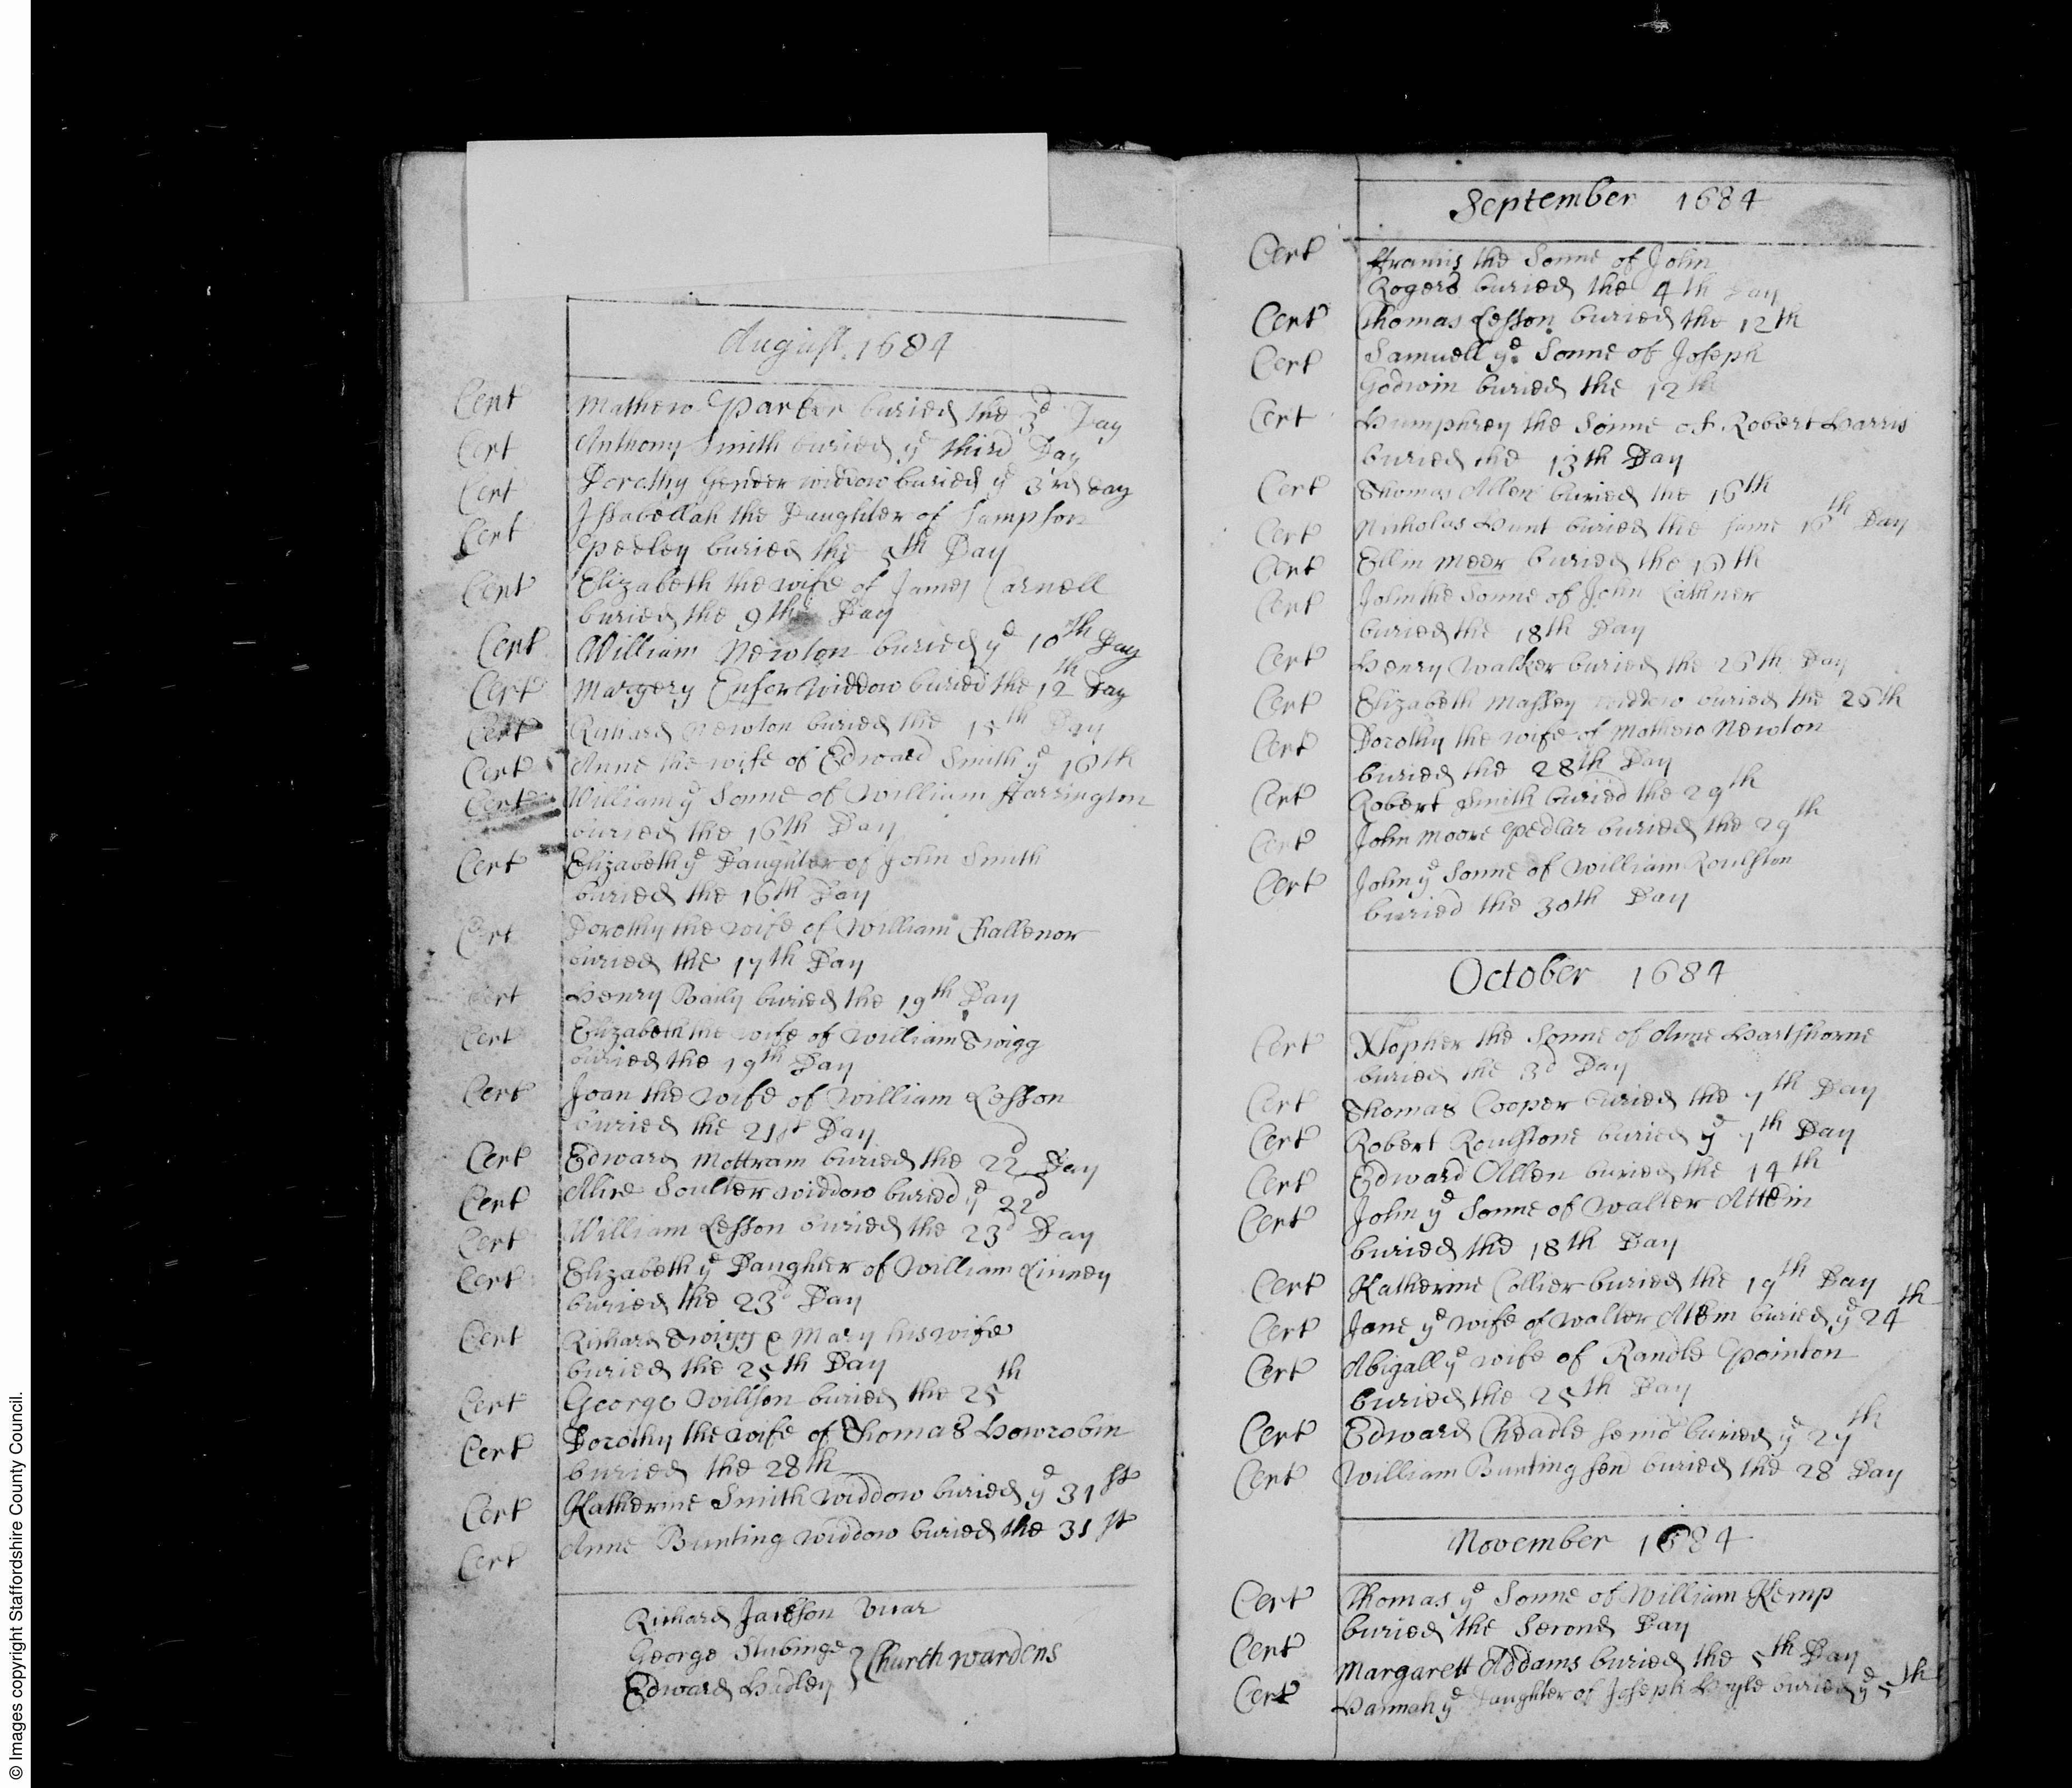 August 1684
Cert Mathew Parker buried the 3d Day
Cert Anthony Smith buried ye third Day
Cert Dorothy Gender widdow buried ye 3rd day
Cert Issabellah the Daughter of Sampson
Pedley buried the 5th Day
Cert Elizabeth the wife of James Carnell
buried the 9th Day
Cert William Newton buried ye 10th Day
Cert Margery Ensor Widdow buried the 12th Day
Cert Richard Newton buried the 15th Day
Cert Anne the wife of Edward Smith ye 16th
Cert William ye Sonne of William Harrington
buried the 16th Day
Cert Elizabeth ye Daughter of John Smith
buried the 16th Day
Cert Dorothy the wife of William Challenor
buried the 17th Day
Cert Henry Baily buried the 19th Day
Cert Elizabeth the wife of William Twigg
buried the 19th Day
Cert Joan the wife of William Lesson
buried the 21st Day
Cert Edward Mottram buried the 22d Day
Cert Alice Soulter widdow buried ye 22d
Cert William Lesson buried the 23d Day
Cert Elizabeth ye Daughter of William Linney
buried the 23d Day
Cert Richard Twigg & Mary his wife
buried the 25th Day
Cert George Willson buried the 25th
Cert Dorothy the wife of Thomas Howrobin
buried the 28th
Cert Katherine Smith Widdow buried ye 31st
Cert Anne Bunting widdow buried the 31st
Richard Jackson Vicar
George Stubinge
Edward Hadley } Church wardens
September 1684
Cert ffrancis the Sonne of John
Rogers buried the 4th Day
Cert Thomas Lesson buried the 12th
Cert Samuell ye Sonne of Joseph
Godwin buried the 12th
Cert Humphrey the Sonne of Robert Harris
buried the 13th Day
Cert Thomas Allen buried the 16th
Cert Nicholas Hunt buried the same 16th Day
Cert Ellin Meer buried the 16th
Cert John the Sonne of John Lathner
buried the 18th Day
Cert Henry Walker buried the 26th Day
Cert Elizabeth Massey widdow buried the 26th
Cert Dorothy the wife of Mathew Newton
buried the 28th Day
Cert Robert Smith buried the 29th
Cert John Moore Pedlar buried the 29th
Cert John ye Sonne of William Roulston
buried the 30th Day
October 1684
Cert Xtopher the Sonne of Anne Hartshorne
buried the 3d Day
Cert Thomas Cooper buried the 7th Day
Cert Robert Roulstone buried ye 7th Day
Cert Edward Allen buried the 14th
Cert John ye Sonne of Walter Attkin
buried the 18th Day
Cert Katherine Collier buried the 19th Day
Cert Jane ye wife of Walter Atkin buried ye 24th
Cert Abigall ye wife of Randle Pointon
buried the 25th Day
Cert Edward Cheadle buried ye 27th
Cert William Bunting sen buried the 28 Day
November 1684
Cert Thomas ye Sonne of William Kemp
buried the Second Day
Cert Margarett Addams buried the 5th Day
Cert Hannah ye Daughter of Joseph Hoyle buried ye 5th
© Images copyright Staffordshire County Council.